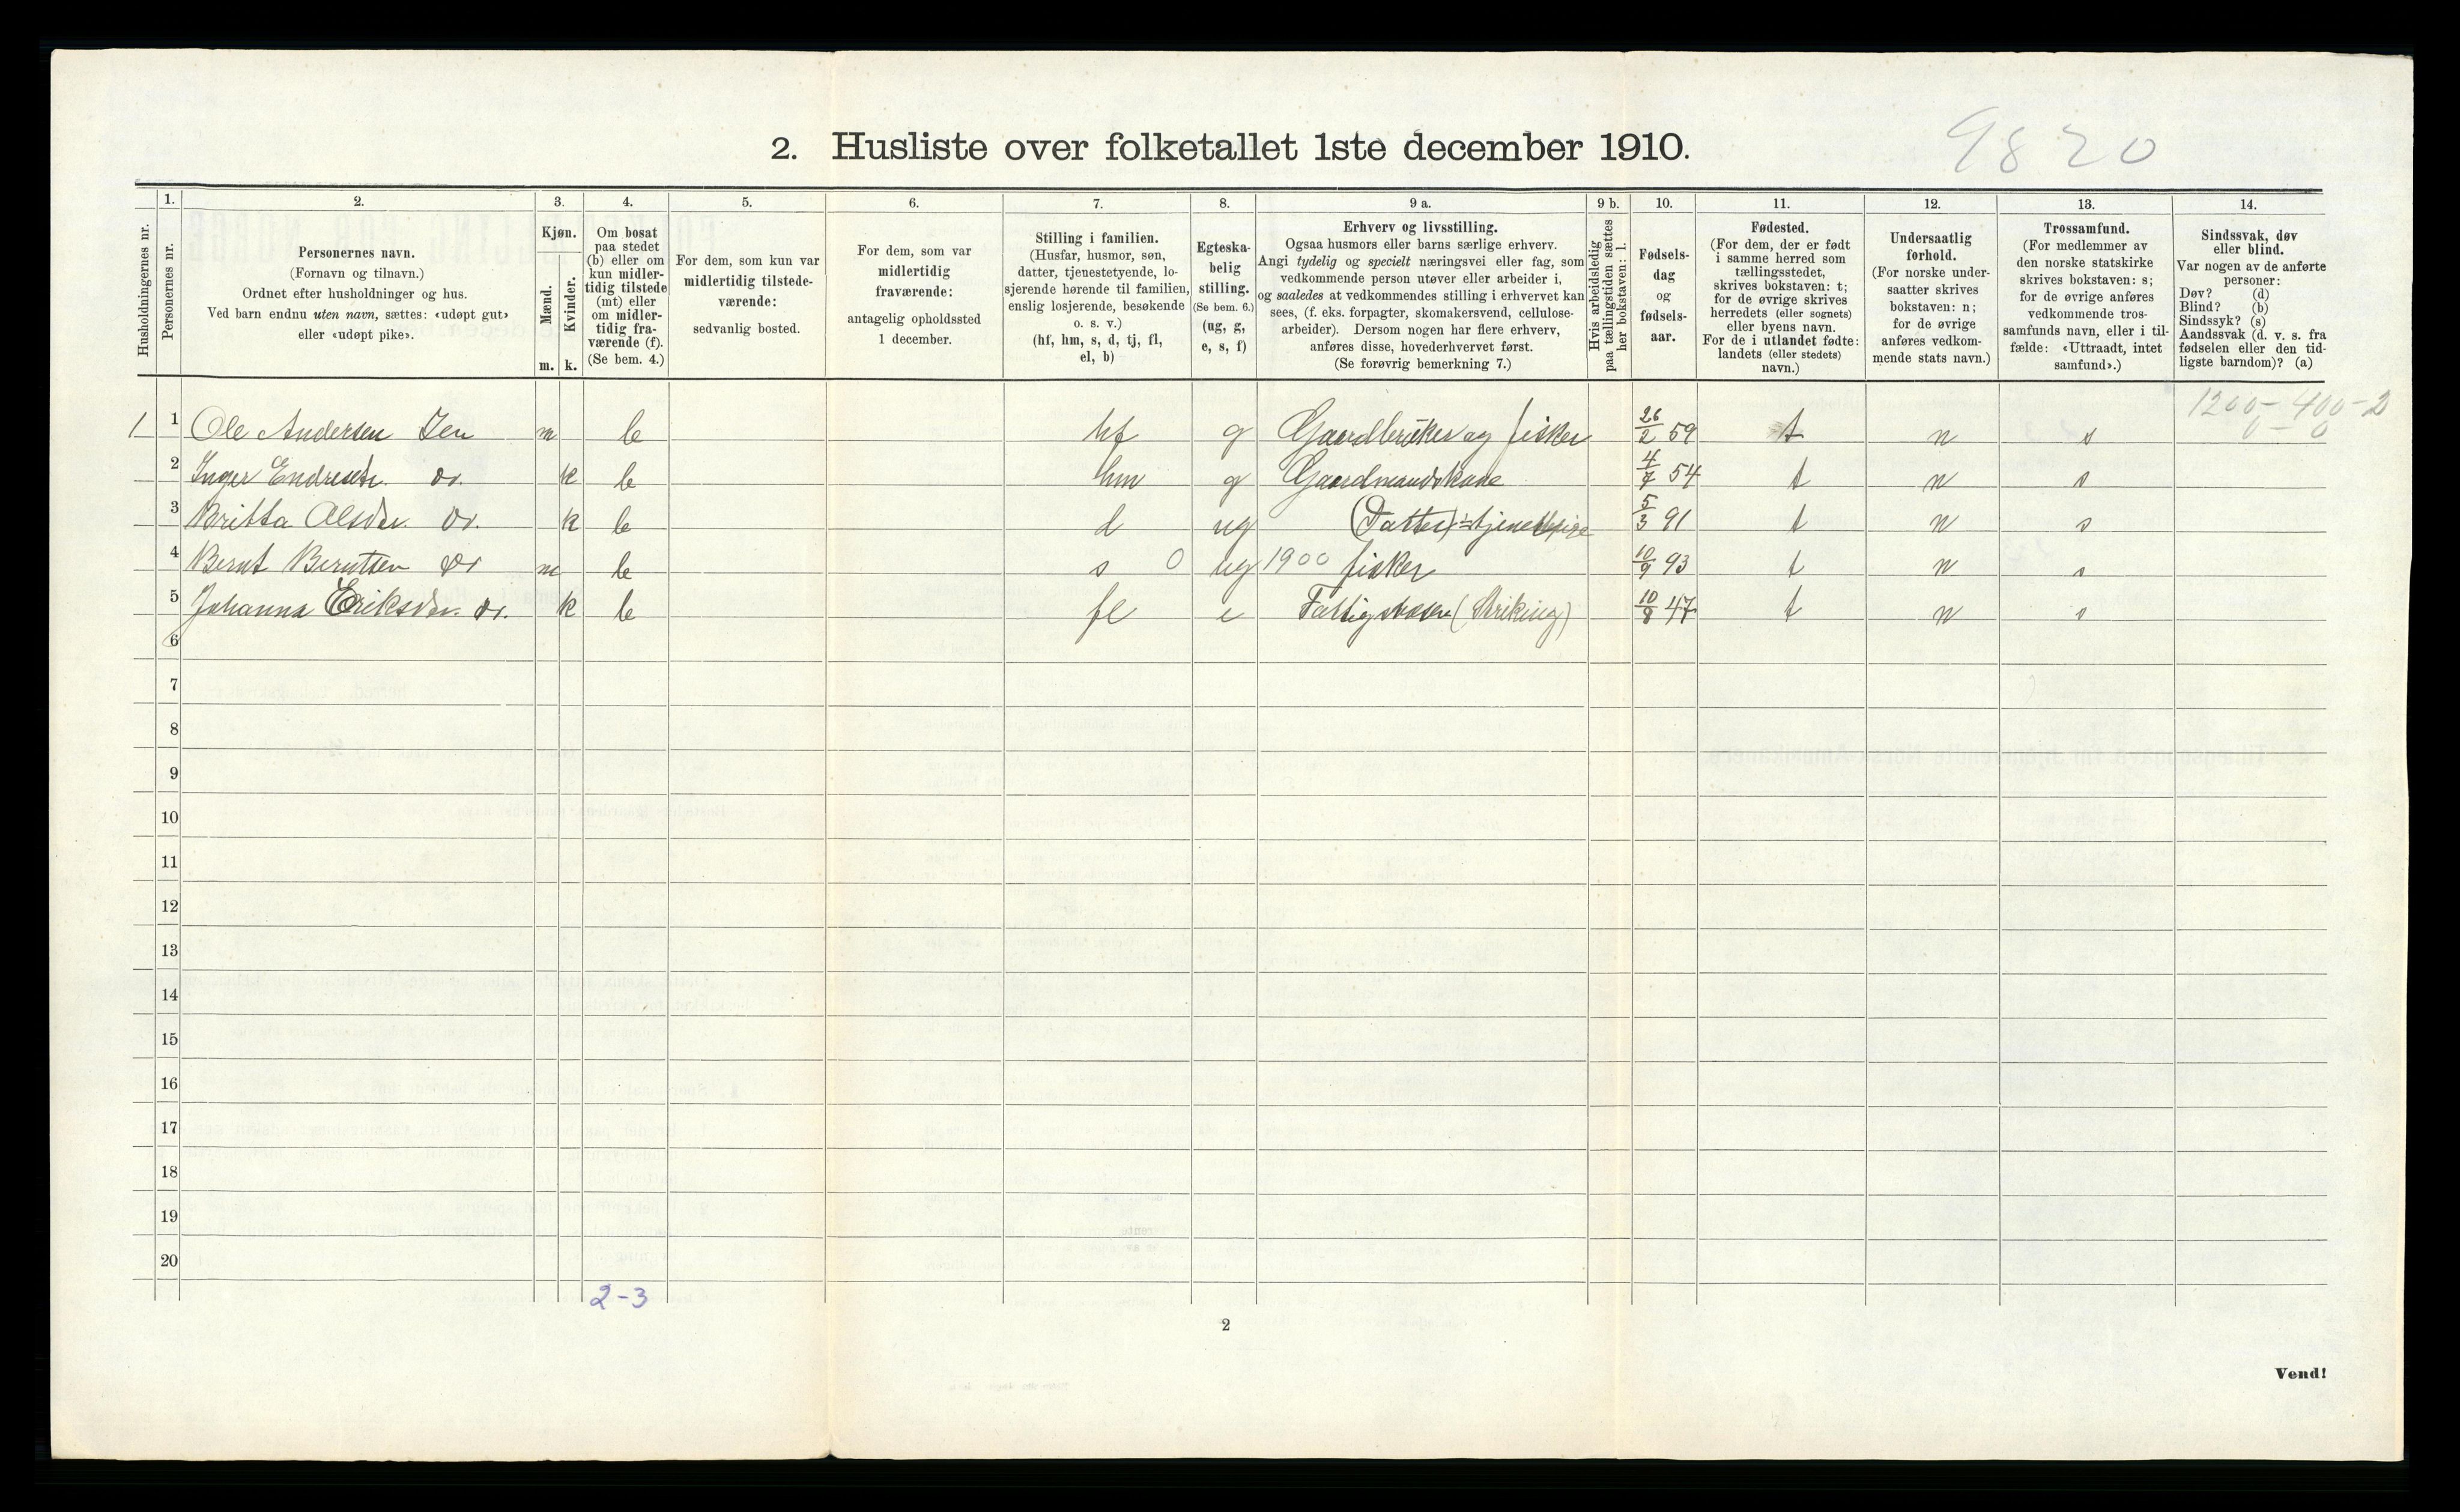 2. Husliste over folketallet 1ste december 1910.
9820
Husholdningernes nr.
1.
Personernes nr.
2.
Personernes navn.
(Fornavn og tilnavn.)
Ordnet efter husholdninger og hus.
Ved barn endnu uten navn, sættes: «udøpt gut»
eller «udøpt pike».
3.
Kjøn.
Mænd.
Kvinder.
m. k.
4.
Om bosat
paa stedet
(b) eller om
kun midler-
tidig tilstede
(mt) eller
om midler-
tidig fra-
værende (f).
(Se bem. 4.)
5.
For dem, som kun var
midlertidig tilstede-
værende:
sedvanlig bosted.
6.
For dem, som var
midlertidig
fraværende:
antagelig opholdssted
1 december.
7.
Stilling i familien.
(Husfar, husmor, søn,
datter, tjenestetyende, lo-
sjerende hørende til familien,
enslig losjerende, besøkende
o. s. v.)
(hf, hm, s, d, tj, fl,
el, b)
8.
Egteska-
belig
stilling.
(Se bem. 6.)
(ug, g,
e, s, f)
9 a.
Erhverv og livsstilling.
Ogsaa husmors eller barns særlige erhverv.
Angi tydelig og specielt næringsvei eller fag, som
vedkommende person utøver eller arbeider i,
og saaledes at vedkommendes stilling i erhvervet kan
sees, (f. eks. forpagter, skomakersvend, cellulose-
arbeider). Dersom nogen har flere erhverv,
anføres disse, hovederhvervet først.
(Se forøvrig bemerkning 7.)
9 b.
Hvis arbeidsledig
paa tællingstiden sættes
her bokstaven: l.
10.
Fødsels-
dag
og
fødsels-
aar.
11.
Fødested.
(For dem, der er født
i samme herred som
tællingsstedet,
skrives bokstaven: t;
for de øvrige skrives
herredets (eller sognets)
eller byens navn.
For de i utlandet fødte:
landets (eller stedets)
navn.)
12.
Undersaatlig
forhold.
(For norske under-
saatter skrives
bokstaven: n;
for de øvrige
anføres vedkom-
mende stats navn.)
13.
Trossamfund.
(For medlemmer av
den norske statskirke
skrives bokstaven: s;
for de øvrige anføres
vedkommende tros-
samfunds navn, eller i til-
fælde: «Uttraadt, intet
samfund».)
14.
Sindssvak, døv
eller blind.
Var nogen av de anførte
personer:
Døv? (d)
Blind? (b)
Sindssyk? (s)
Aandssvak (d. v. s. fra
fødselen eller den tid-
ligste barndom)? (a)
1200 - 400 - 2
0 - 0
1 1 Ole Andersen m b hf g Gaardbruker og fisker 26/2 59 t n s
2 Inger Endresdtr. Do. k b hm g Gaardmandskone 4/7 54 t n s
3 Britta Olsdtr. Do. k b d ug (Datter) tjenestpige 5/3 91 t n s
4 Bernt Berntsen Do m b s 0 ug 1900 fisker 10/9 93 t n s
5 Johanna Eriksdtr. Do. k b fl e Fattigvæsen (Striking) 10/8 47 t n s
6
7
8
9
10
11
12
13
14
15
16
17
18
19
20
2-3
2
Vend!